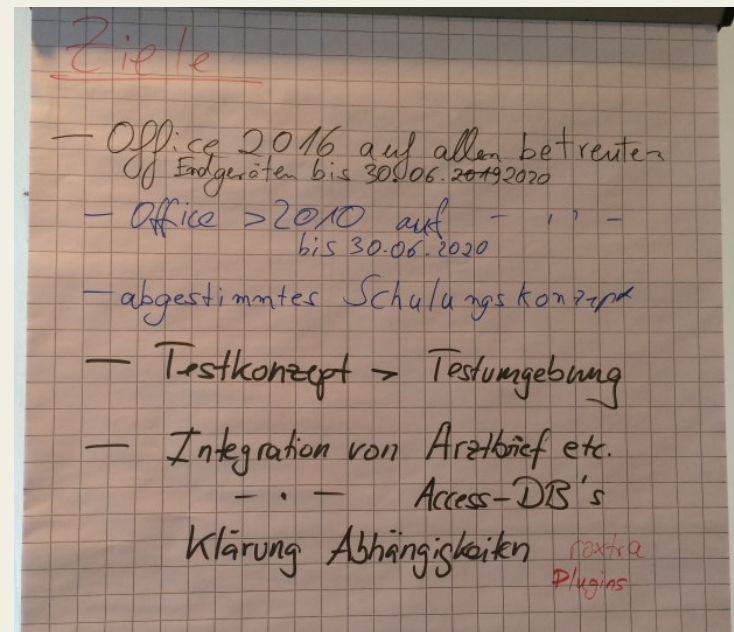 Ziele
— Office 2016 auf allen betreuten
Endgeräten bis 30.06.20192020
— Office >2010 auf — '' —
bis 30.06.2020
— abgestimmtes Schulungskonzept
— Testkonzept > Testumgebung
— Integration von Arztbrief etc.
— . — Access-DB's
Klärung Abhängigkeiten roxtra
Plugins